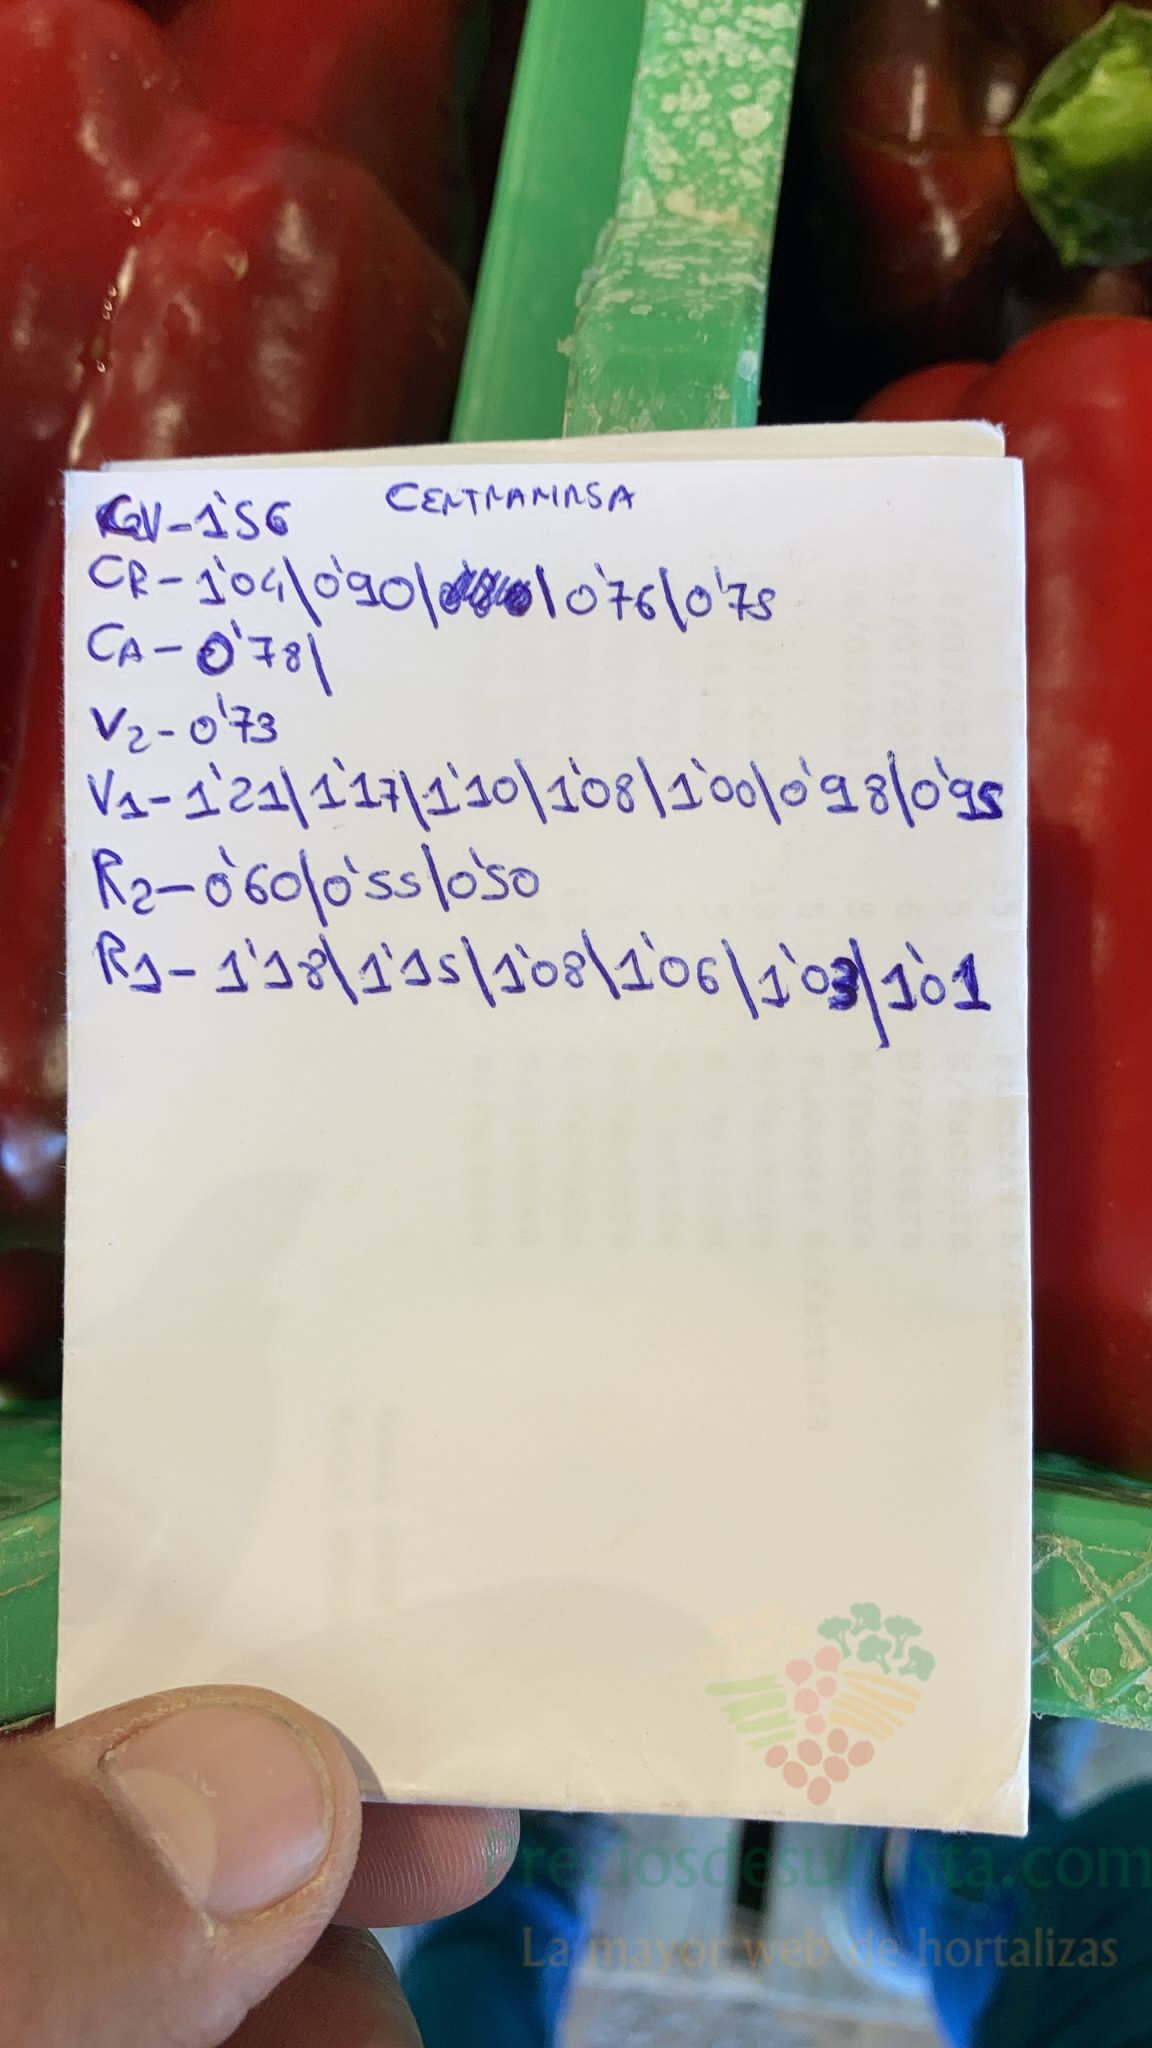 CENTRAMIRSA
GV-1'56
CR-1'04\0'90\ \0'76\0'75
CA-0'78\
V2-0'73
V1-1'21\1'17\1'10\1'08\1'00\0'98\0'95
R2-0'60\0'55\0'50
R1-1'18\1'15\1'08\1'06\1'03\1'01
Preciosdesubasta.com
La mayor web de hortalizas